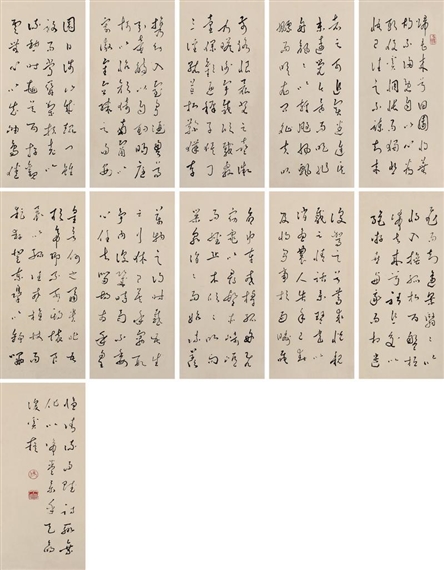 歸去來兮田園將蕪
胡不歸既自以心為
形役奚惆悵而獨悲
悟已往之不諫知來
者之可追實迷途其
未遠覺今是而昨非
舟遙遙以輕颺風飄
飄而吹衣問征夫以
前路恨晨光之熹微
乃瞻衡宇載欣載奔
僮僕歡迎稚子候門
三徑就荒松菊猶存
攜幼入室有酒盈樽
引壺觴以自酌眄庭
柯以怡顏倚南窗以
寄傲審容膝之易安
園日涉以成趣門雖
設而常關策扶老以
流憩時矯首而遐觀
雲無心以出岫鳥倦
飛而知還景翳翳以
將入撫孤松而盤桓
歸去來兮請息交以
絕游世與我而相遺
復駕言兮焉求悅親
戚之情話樂琴書以
消憂農人告余以春
及將有事於西疇或
命巾車或棹孤舟既
窈窕以尋壑亦崎嶇
而經丘木欣欣以向
榮泉涓涓而始流羨
萬物之得時感吾生
之行休已矣乎寓形
宇內復幾時曷不委
心任去留胡為乎遑
遑欲何之富貴非吾
願帝鄉不可期懷良
辰以孤往或植杖而
耘耔登東皋以舒嘯
臨清流而賦詩聊乘
化以歸盡樂夫天命
復奚疑